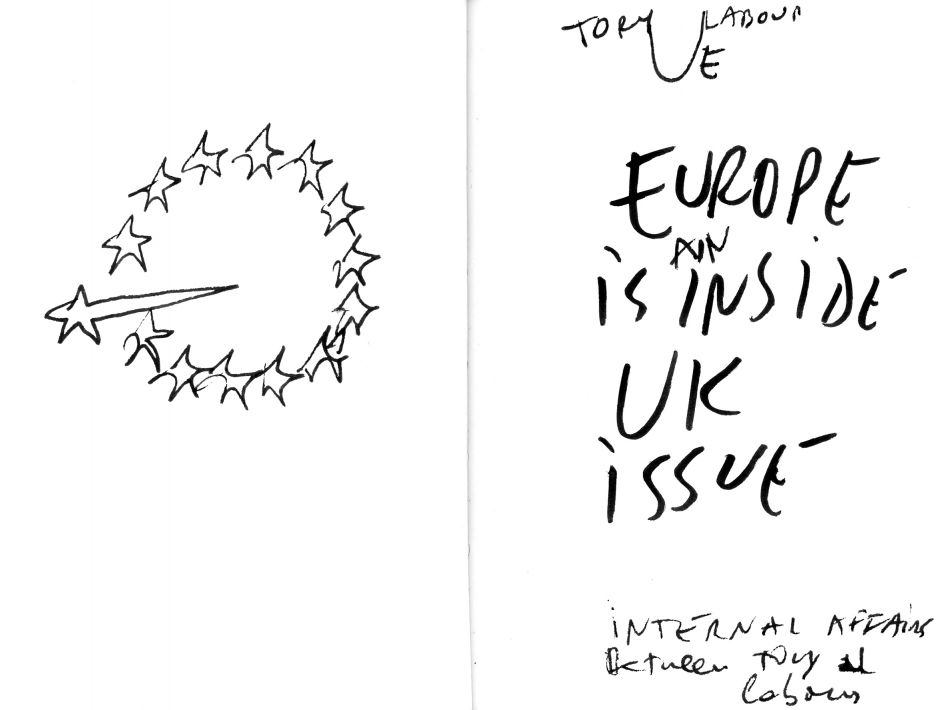 TORY LABOUR
UE
EUROPE
is AN INSIDE
UK
iSSUE
iNTERNAL AFFAirs
Between Tory and
Labours